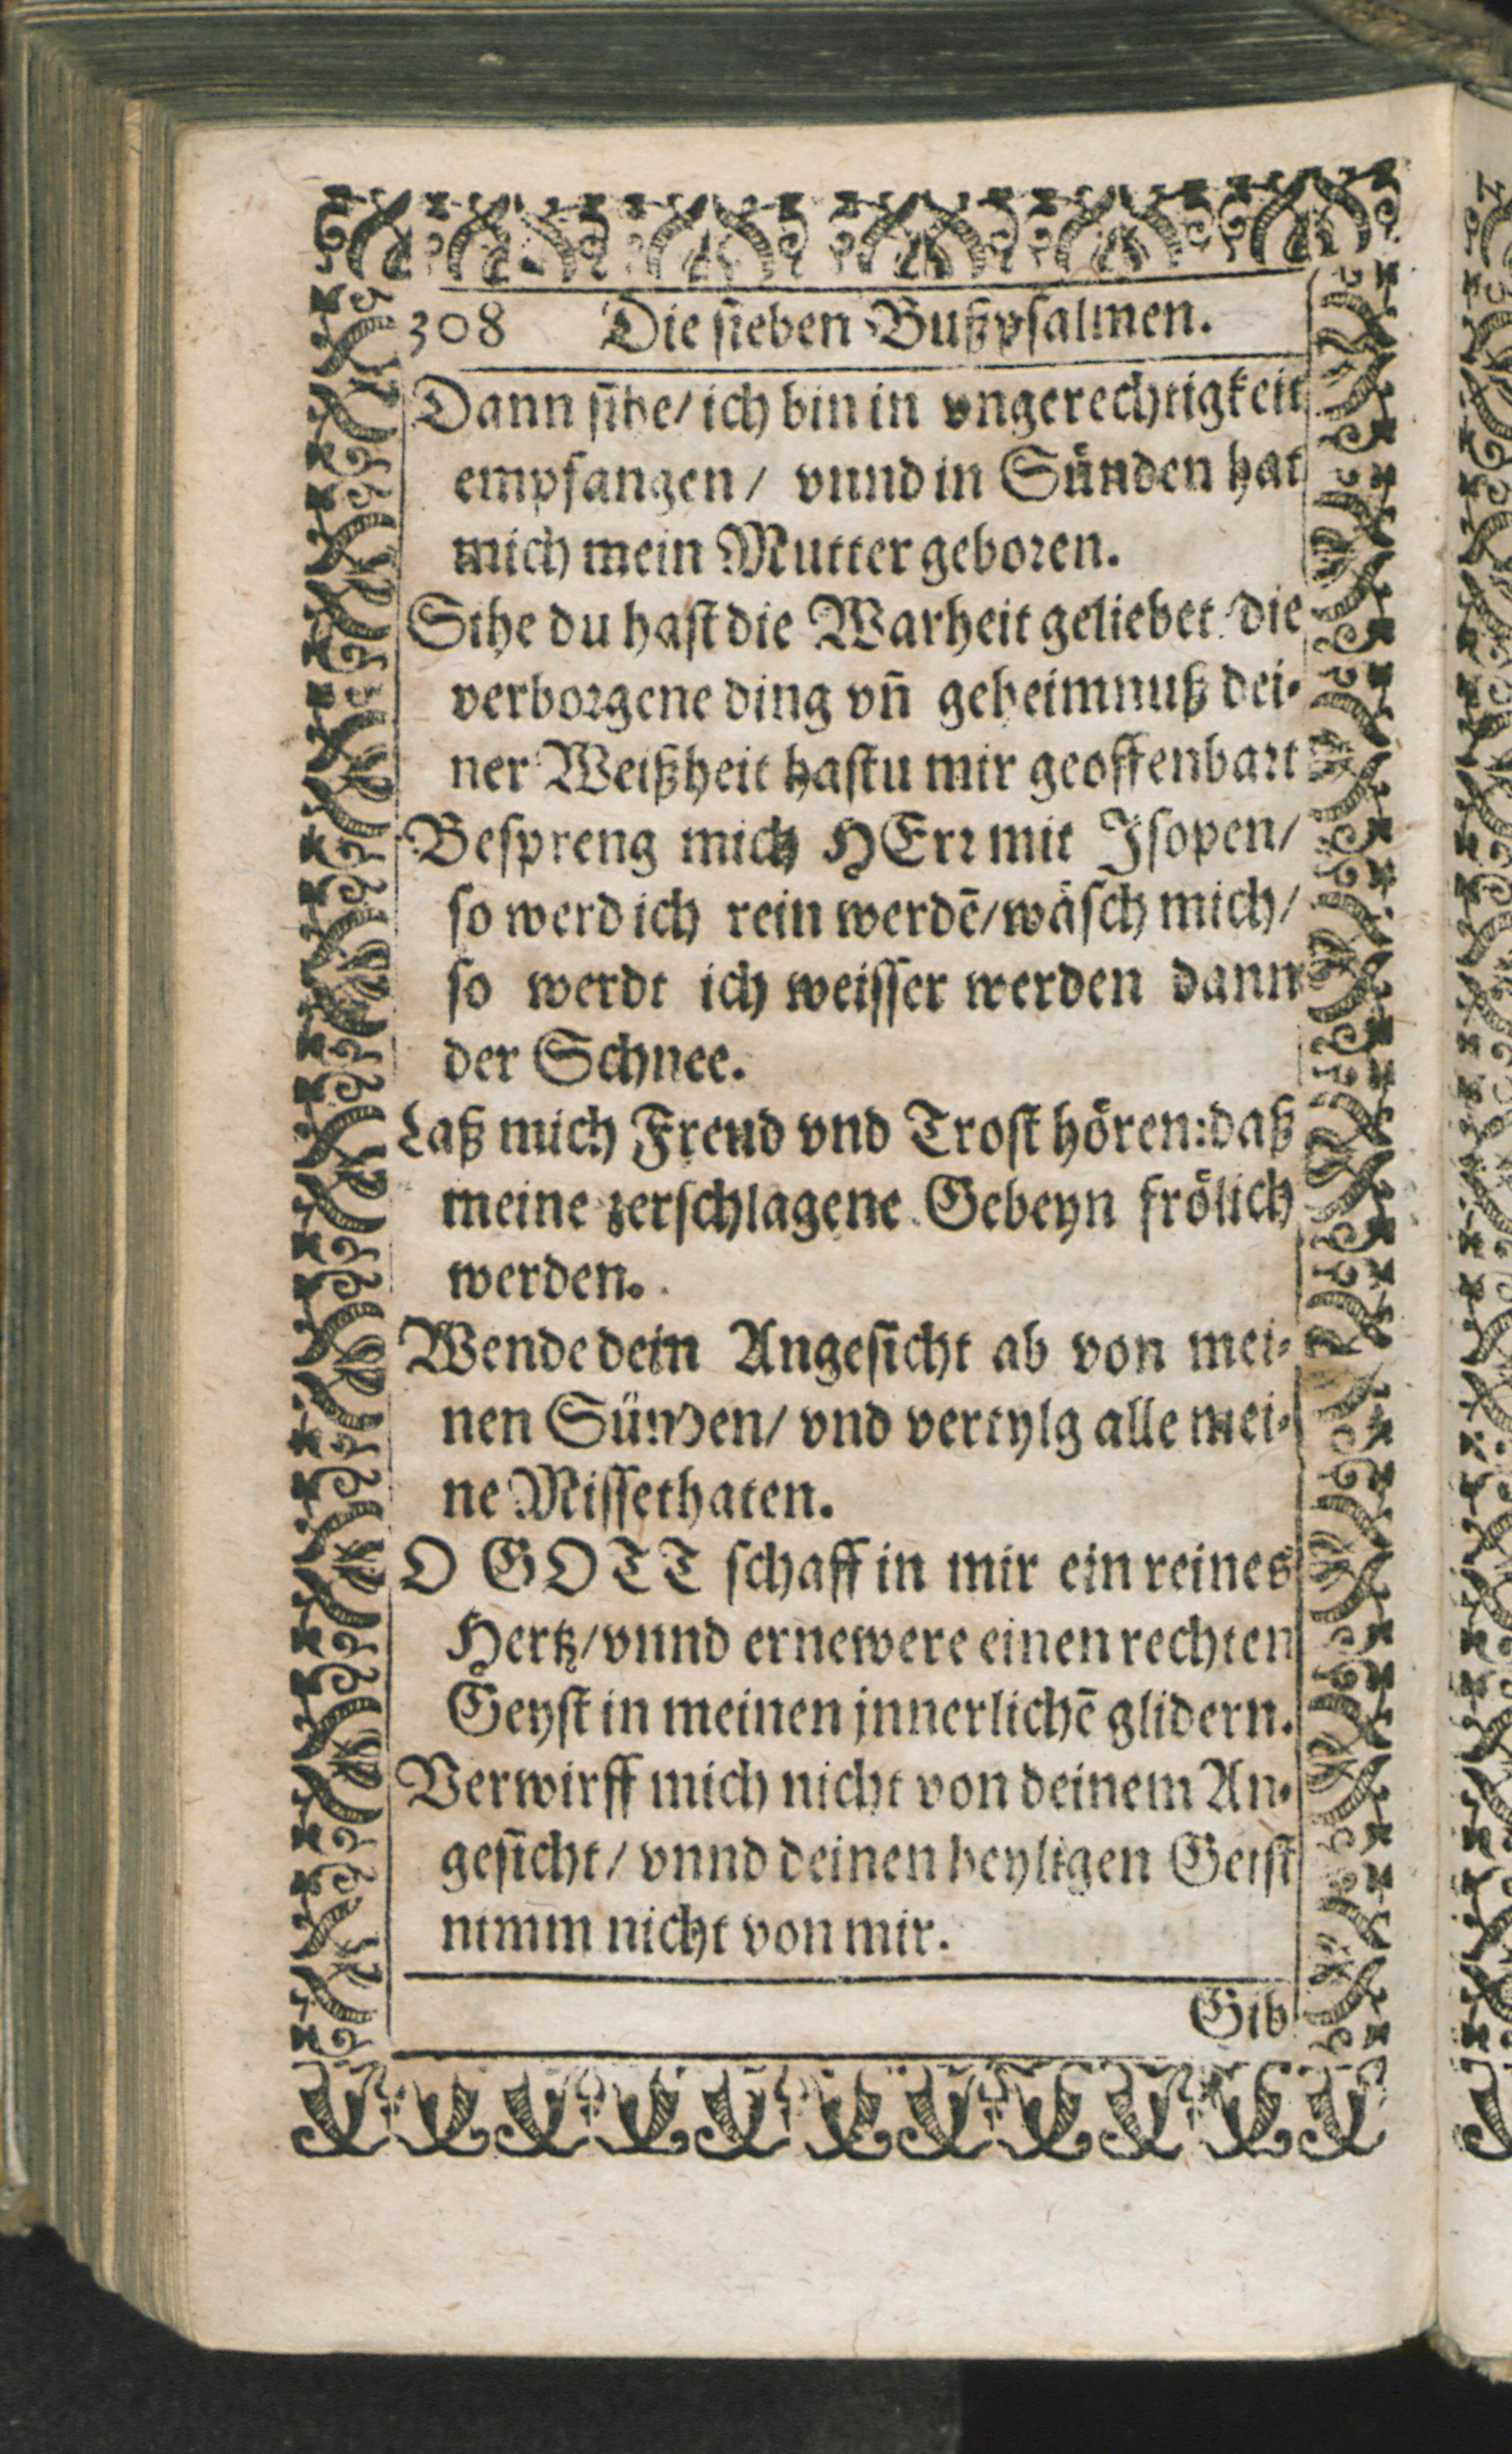 308 Die ſieben Bußpſalmen.
Dann ſihe/ ich bin in vngerechtigkeit
empfangen/ vnnd in Sünden hat
mich mein Mutter geboꝛen.
Sihe du haſt die Warheit geliebet/ die
verboꝛgene ding vn̄ geheimnuß dei-
ner Weißheit haſtu mir geoffenbaꝛt
Beſpreng mich HErꝛ mit Jſopen/
ſo werd ich rein werdē/ wäſch mich/
ſo werdt ich weiſſer werden dann
der Schnee.
Laß mich Freud vnd Troſt hören: daß
meine zerſchlagene Gebeyn frölich
werden.
Wende dein Angeſicht ab von mei-
nen Sünden/ vnd vertylg alle mei-
ne Miſſethaten.
O GOTT ſchaff in mir ein reines
Hertz/ vnnd ernewere einen rechten
Geyſt in meinen jnnerlichē glidern.
Verwirff mich nicht von deinem An-
geſicht/ vnnd deinen heyligen Geiſt
nimm nicht von mir.
Gib